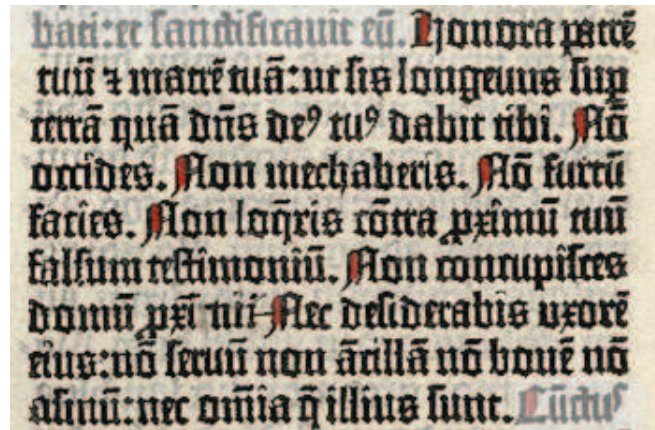 bati:et sanctificavit eū. Honora patrē
tuū ⁊ matrē tuā:ut sis longeuus sup
terrā quā dn̄s de⁹ tu⁹ dabit tibi. Nō
occides. Non mechaberis. Nō furtū
facies. Non loq̄ris cōtra ꝓximū tuū
falsum testimoniū. Non concupisces
domū ꝓxi Nec desiderabis uxorē
eius:nō seruū non ācillā nō bouē nō
asinū:nec om̄ia q̄ illius sunt. Cūctus